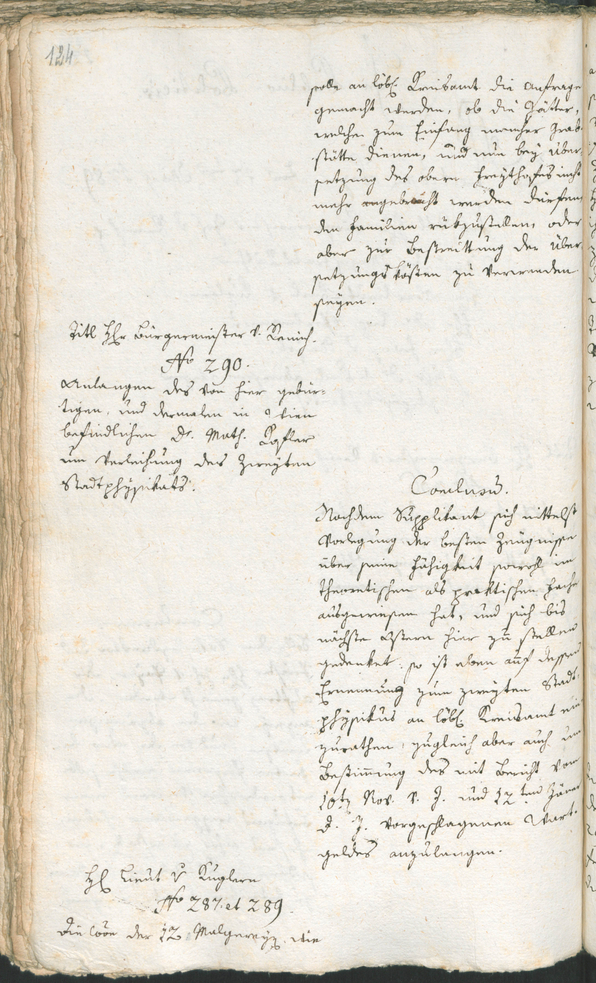 124
solle an löbl. Kreisamt die Anfrage
gemacht werden, ob die Gätter,
welche zum Einfang mancher Grab-
stätte dienen, und nun bey Über-
setzung des obern Freythofes nicht
mehr angebracht werden dürfen
den Familien rükzustellen, oder
aber zur Bestreittung der Über-
setzungskösten zu verwenden
seyen.
Titl Hr Bürgermeister v.
No 290.
Anlangen des von hier gebür-
tigen, und dermalen in Wien
befindlichen Dr. Math.
um Verleihung des zweyten
Stadtphysikats.
Conclusum.
Nachdem Supplikant sich mittelst
Vorlegung der besten Zeugnisse
über seine Fähigkeit sowohl im
theoretischen als praktischen Fache
ausgewiesen hat, und sich bis
nächste Ostern hier zu stellen
gedenket: so ist eben auf dessen
Ernennung zum zweyten Stadt-
physikus an löbl. Kreisamt ein
zurathen, zugleich aber auch um
Bestimung des mit Bericht vom
Nov. v. J. und 12ten Jäner
d. J. vorgeschlagenen Wart-
geldes anzulangen.
Hl Lieut v Kuglern
No 287. et 289.
die der 12 wie